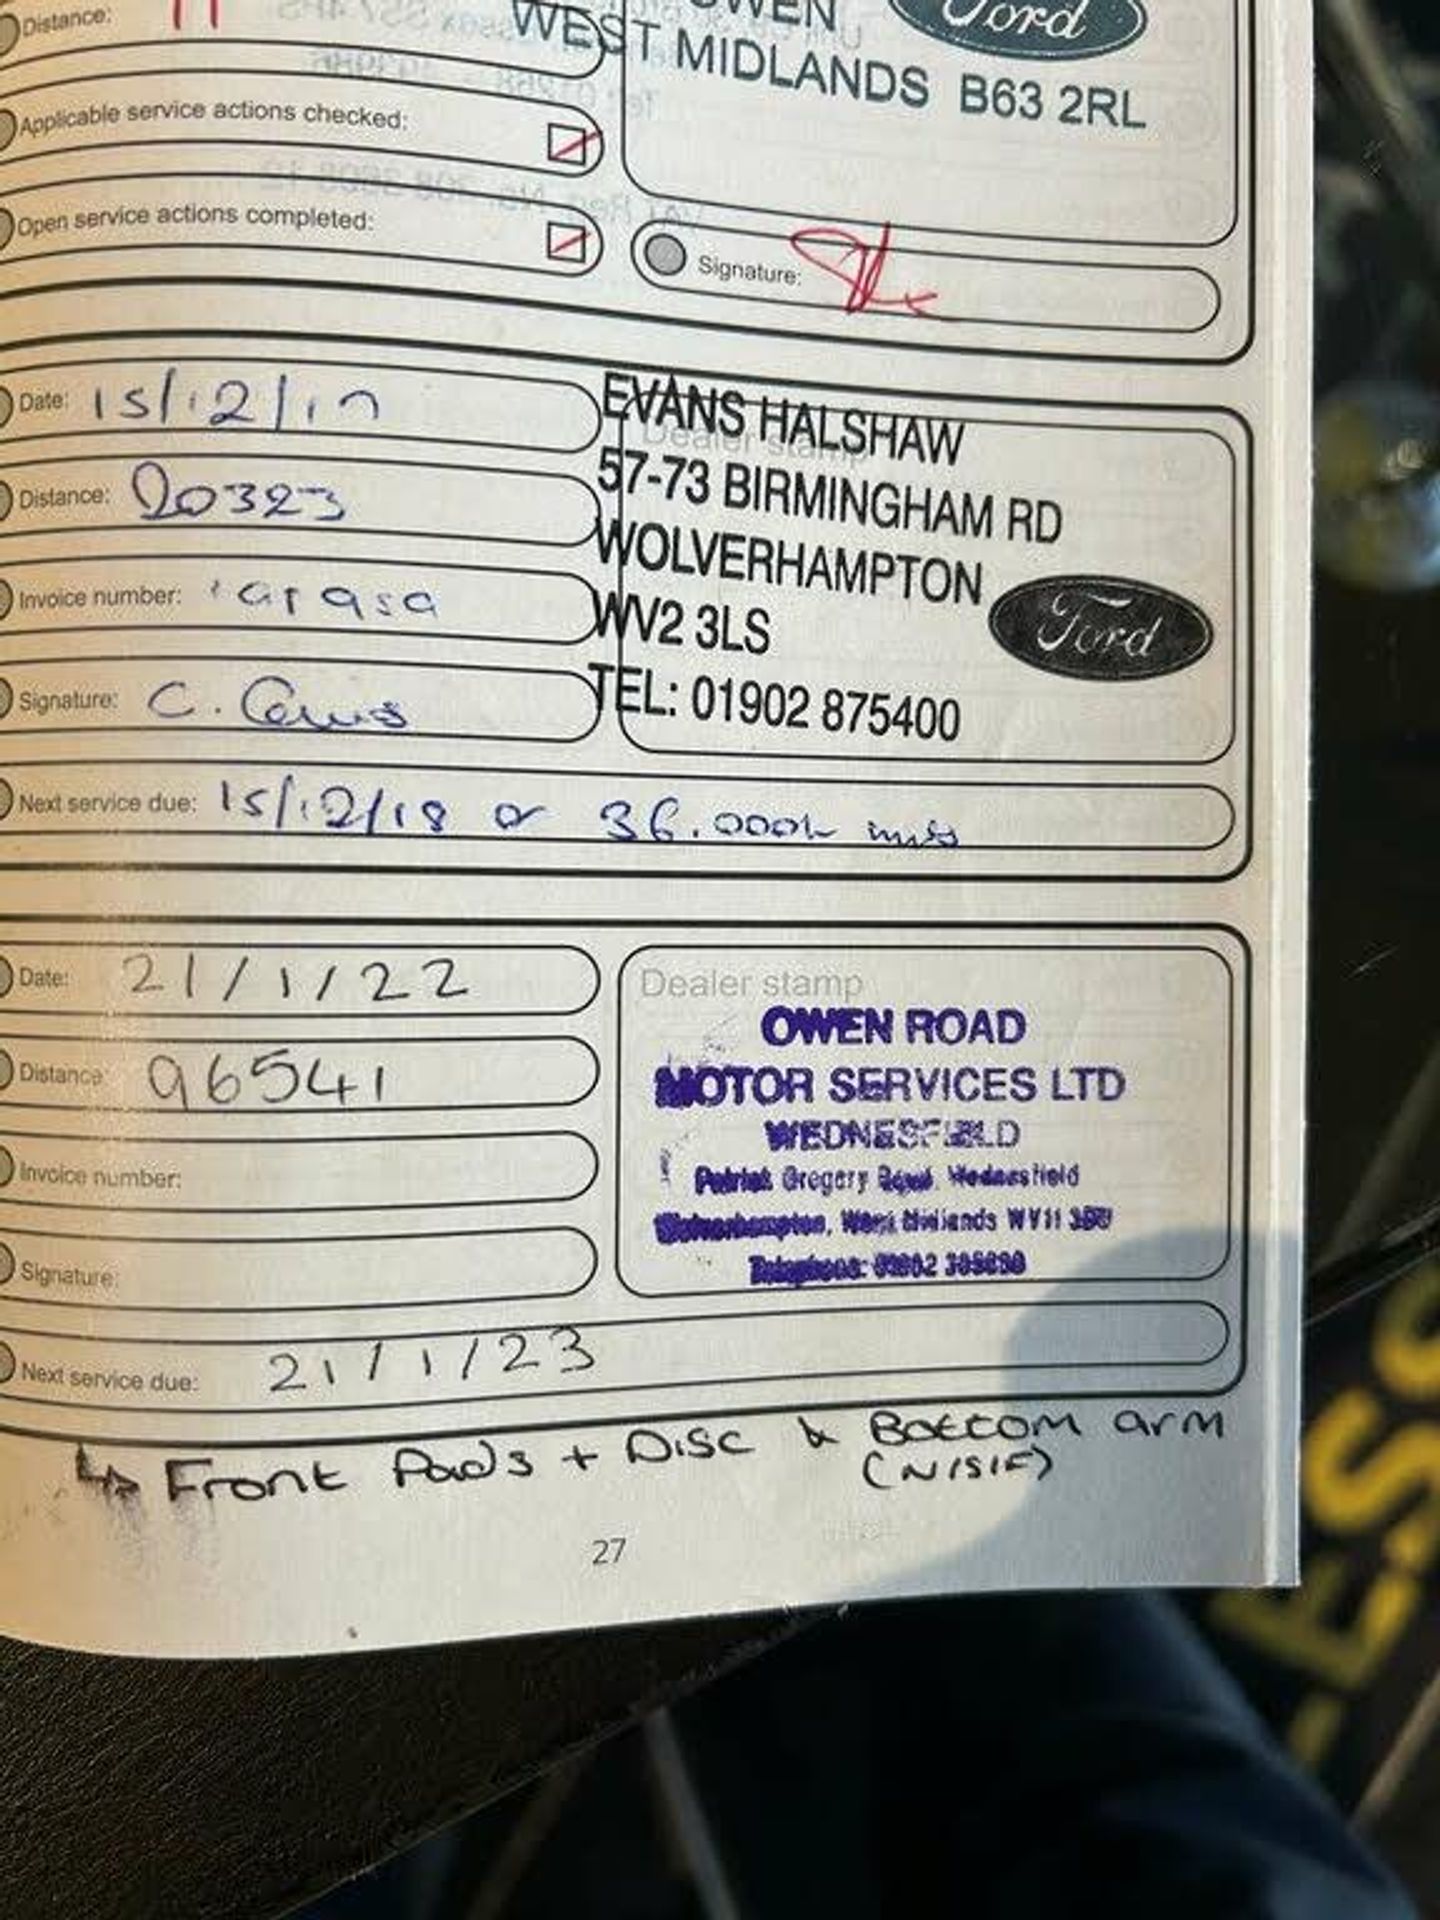 Distance:
WEST MIDLANDS B63 2RL
Ford
Applicable service actions checked:
Open service actions completed:
Signature:
Date: 15/12/17
Distance: 20323
Invoice number:
Signature: C.
Next service due: 15/12/18 or 36.000k miles
EVANS HALSHAW
57-73 BIRMINGHAM RD
WOLVERHAMPTON
WV2 3LS
TEL: 01902 875400
Ford
Dealer stamp
Date: 21/1/22
Distance: 96541
Invoice number:
Signature:
Next service due: 21/1/23
Dealer stamp
OWEN ROAD
MOTOR SERVICES LTD
WEDNESFIELD
Patrick Gregory Road, Wednesfield
Wolverhampton, West Midlands WV11
Telephone: 01902
↳ Front Pads + Disc & Bottom arm
(N/S/F)
27